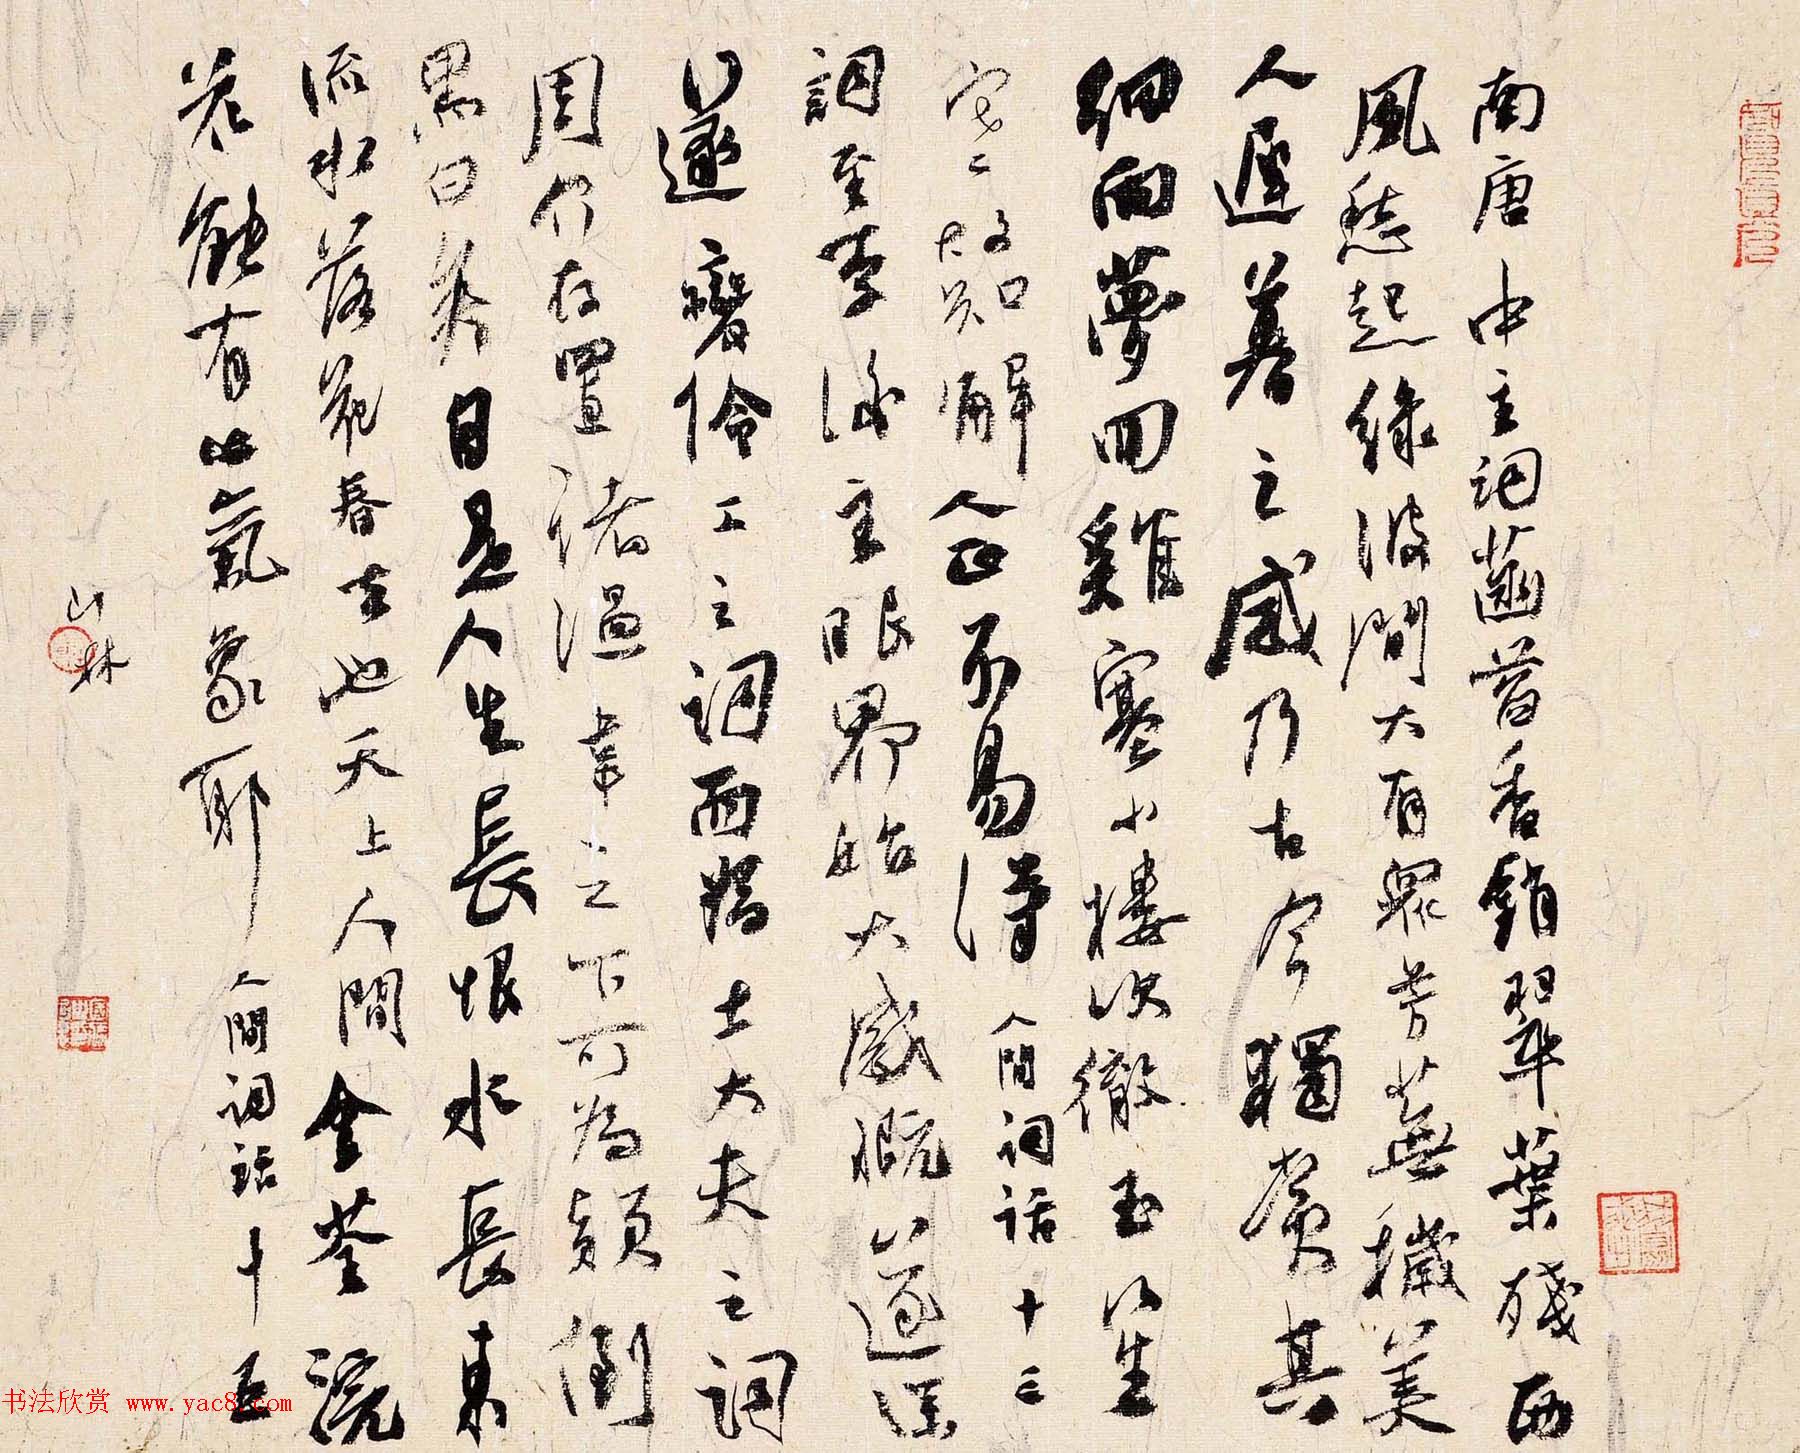 南唐中主詞菡萏香銷翠葉殘西
風愁起綠波間大有眾芳蕪穢美
人遲暮之感乃古今獨賞其
細雨夢回雞塞小樓吹徹玉笙
寒故知解人正不易得 人間詞話十三
詞至李後主眼界始大感慨遂深
遂變伶工之詞而為士大夫之詞
周介存置諸溫韋之下可為顛倒
黑白矣自是人生長恨水長東
流水落花春去也天上人間金荃浣
花能有此氣象耶 人間詞話十五
山林
书法欣赏 www.yac8.com